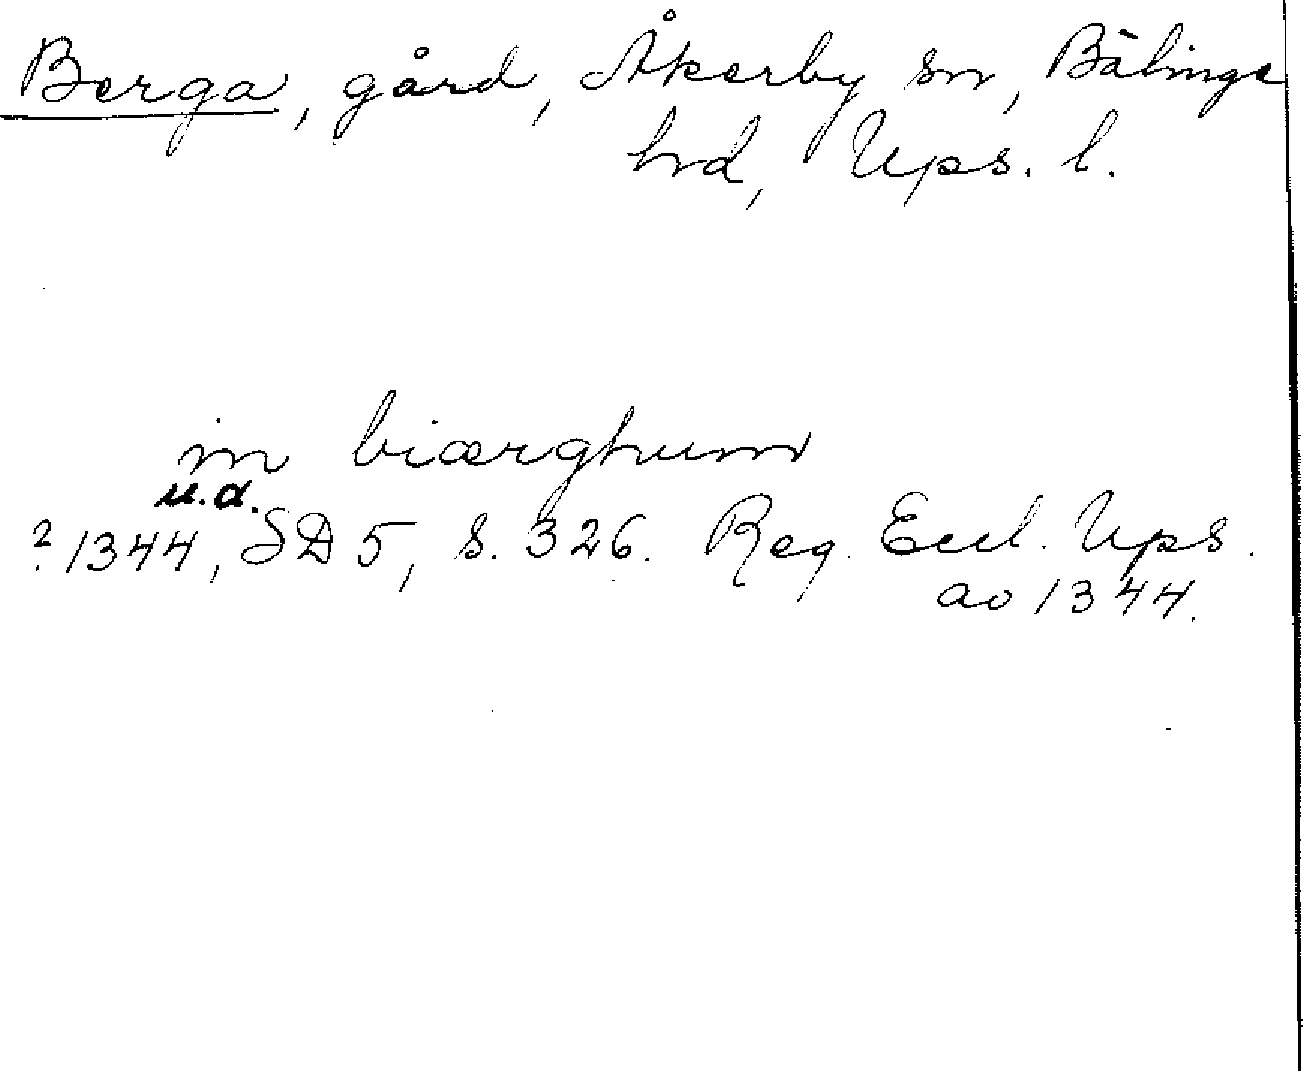 Berga, gård, Åkerby sn, Bälinge
hd, Ups. l.
in biærghum
u.d.
? 1344, SD 5, s. 326. Reg. Eccl. Ups.
ao 1344.